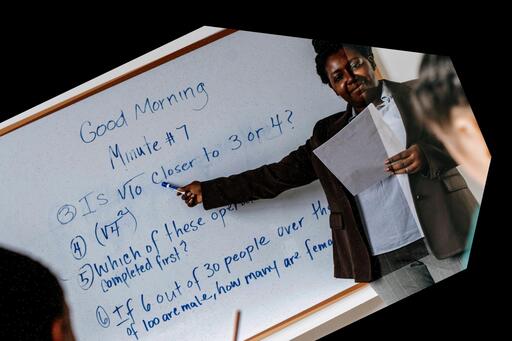 Good Morning
Minute #7
③ Is √10 closer to 3 or 4?
④ (√4)²
⑤ Which of these oper
completed first?
⑥ If 6 out of 30 people over the
of 100 are male, how many are fema